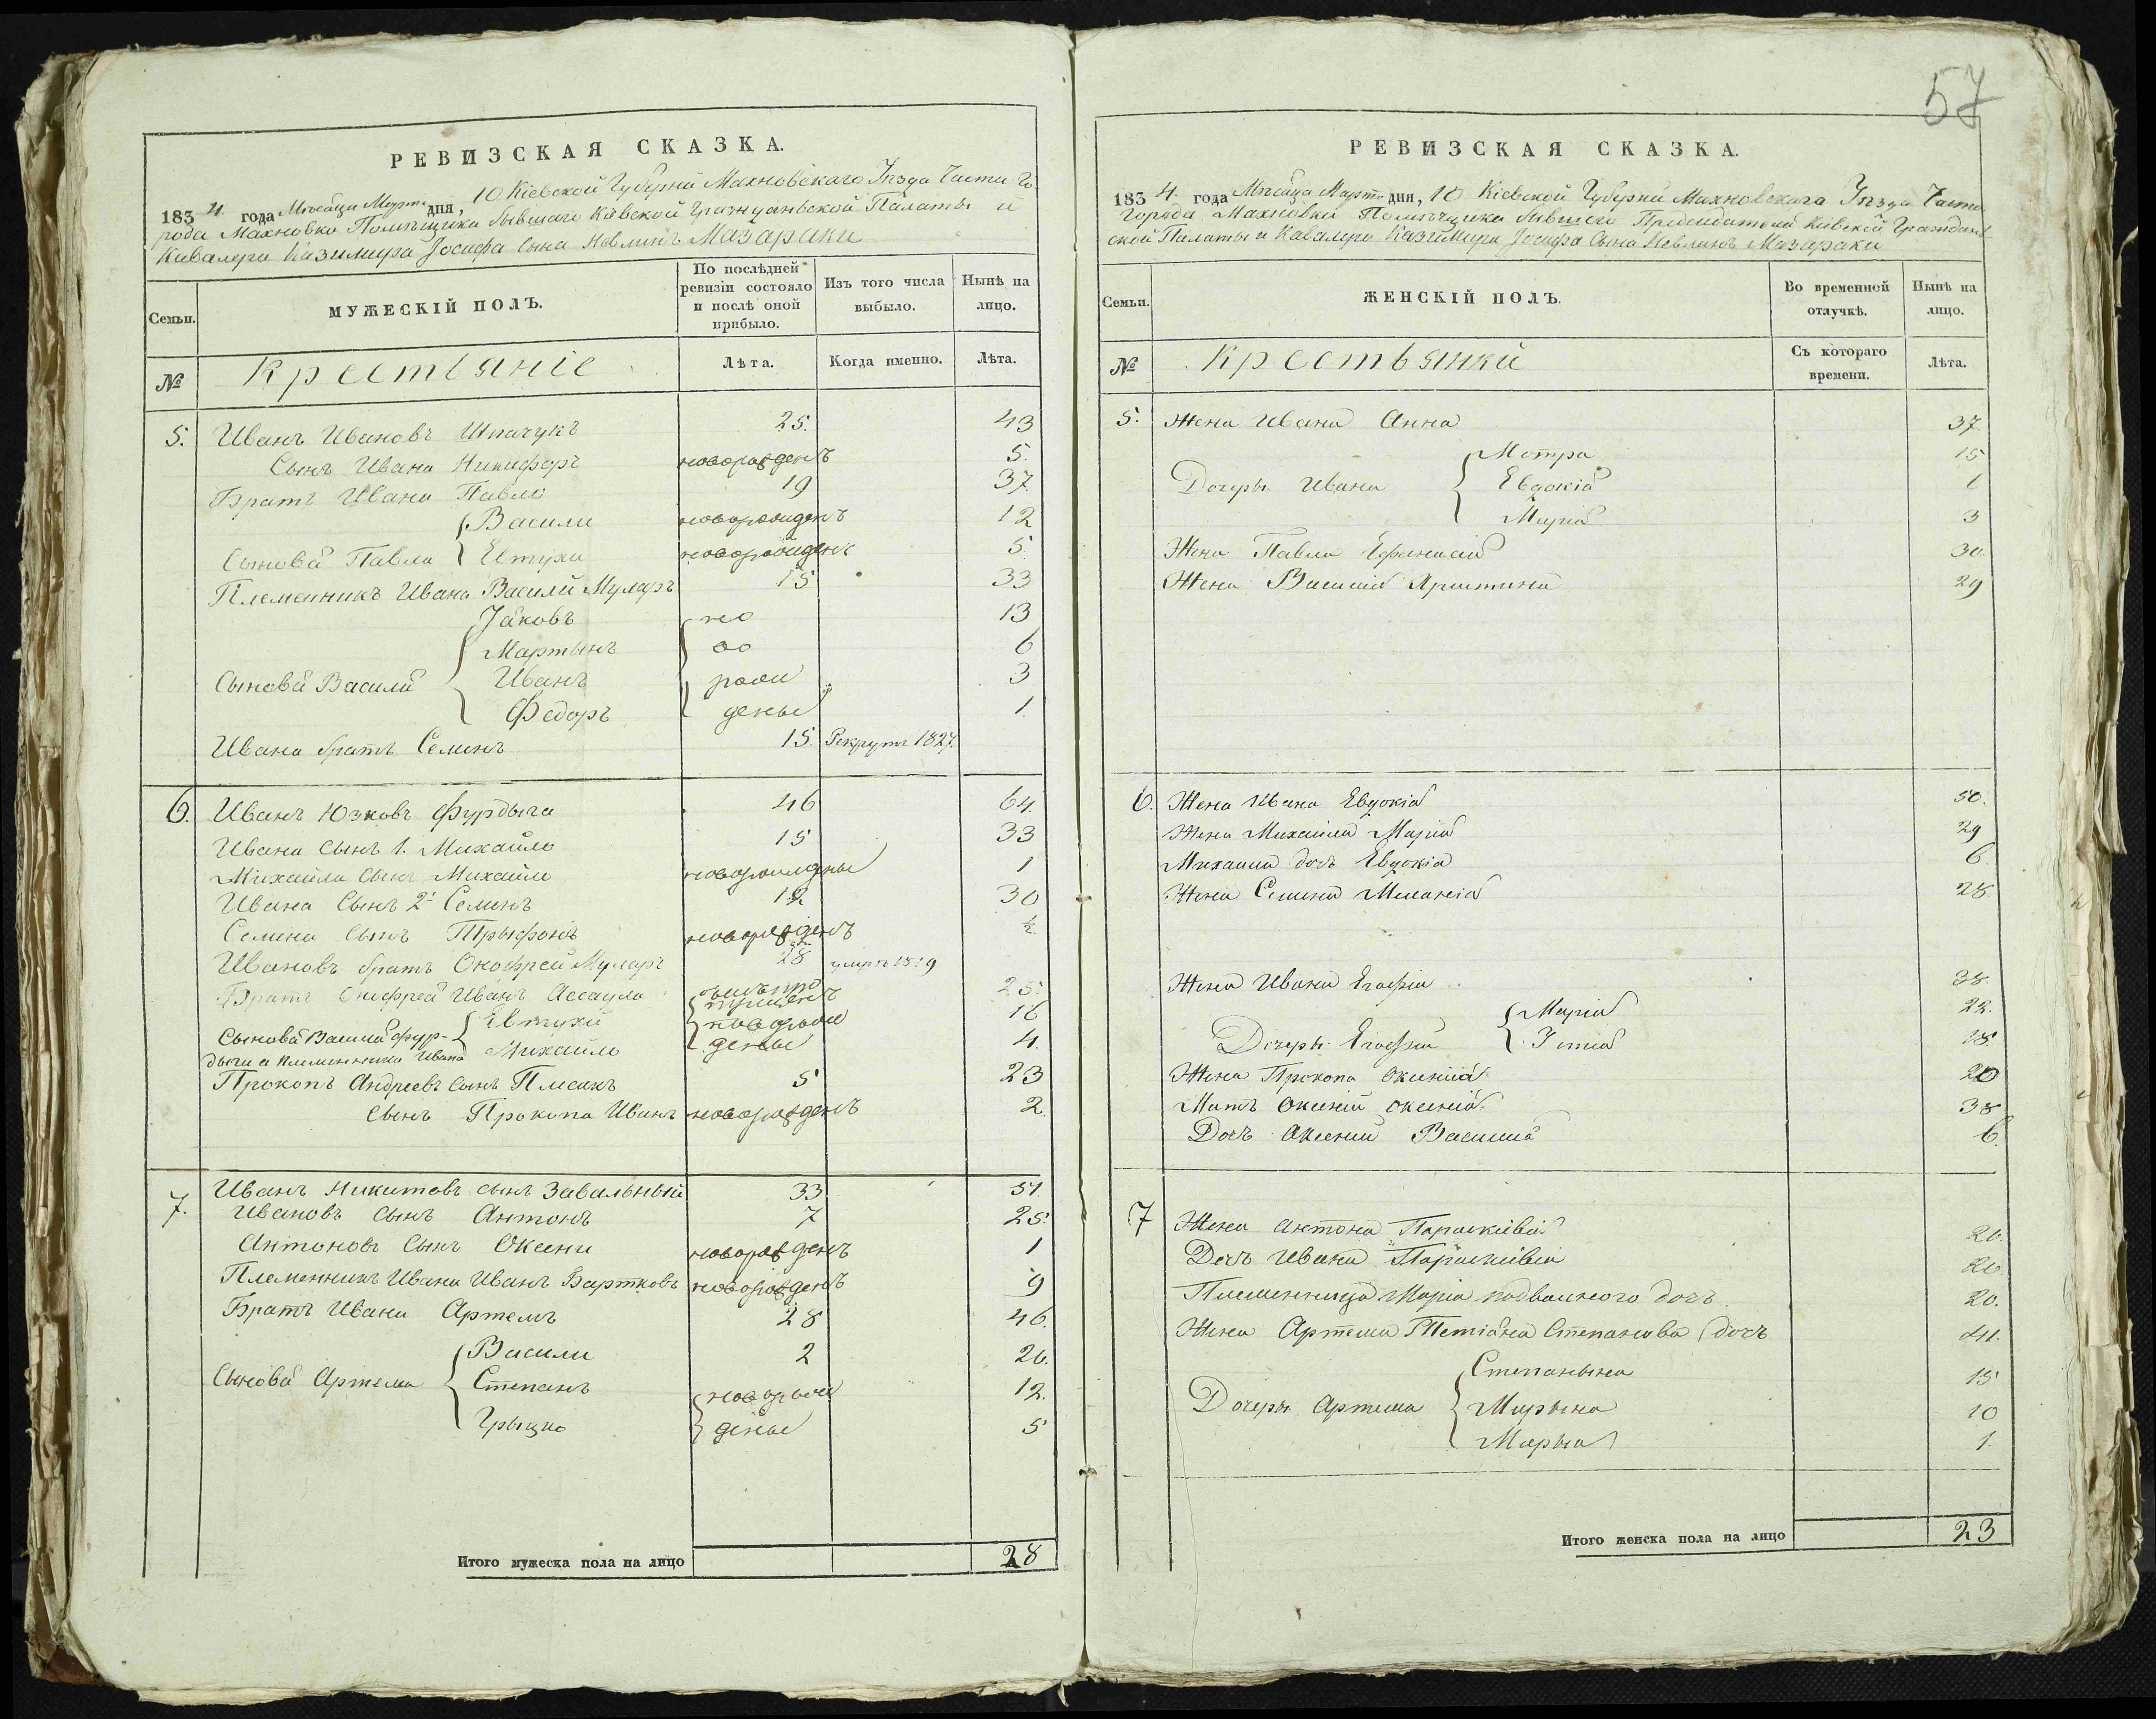 57
РЕВИЗСКАЯ СКАЗКА.
1834 года Мѣсяца Марта дня, 10 Кіевской Губерніи Махновскаго Уѣзда Части Го-
рода Махновки Помѣщика бывшаго Кіевской Гражданской Палаты и
Кавалера Казимира Іосифа Сына Мазараки
Семьи.
МУЖЕСКІЙ ПОЛЪ.
По послѣдней ревизіи состояло и послѣ оной прибыло.
Изъ того числа выбыло.
Нынѣ на лицо.
№
Крестьяніе
Лѣта.
Когда именно.
Лѣта.
5. Иванъ Ивановъ Шпачукъ 25. 43
Сынъ Ивана Никифоръ новорожденъ 5.
Братъ Ивана Павло 19 37.
Васили новорожденъ 12
Сыновя Павла Евтухи новорожденъ 5.
Племенникъ Ивана Васили Муляръ 15 33
Яковъ но 13
Мартынъ во 6
Сыновя Васили Иванъ рожи 3
Федоръ деные 1.
Ивана братъ Семенъ 15. Рекрутъ 1827.
6. Иванъ Юзковъ Фурдыга 46 64.
Ивана сынъ 1. Михайло 15 33
Михайла сынъ Михайло новорожденые 1
Ивана Сынъ 2й Семенъ 12 30
Семена Сынъ Трыфонъ новорожденъ ½.
Ивановъ братъ Онофрей Муляръ 28 умеръ 1819
Братъ Онофрея Иванъ Ассаула 25.
Евтухи 16
Сыновя Васили Фур- новорожи
дыги а племенники Ивана Михайло деные 4.
Прокопъ Андреевъ сынъ 5 23
сынъ Прокопа Иванъ новорожденъ 2.
7. Иванъ Никитовъ сынъ Завальный 33 51.
Ивановъ Сынъ Антонъ 7 25.
Антоновъ Сынъ Оксени новорожденъ 1
Племенникъ Ивана Иванъ Бартковъ новорожденъ 9
Братъ Ивана Артемъ 28 46.
Васили 2 20.
Сыновя Артема Степанъ новорожи 12.
Грыцко деные 5
Итого мужеска пола на лицо 28
РЕВИЗСКАЯ СКАЗКА.
1834 года Мѣсяца Марта дня, 10 Кіевской Губерніи Махновскаго Уѣзда Части
города Махновки Помѣщика бывшего Председателя Кіевской Граждан-
ской Палаты и Кавалера Казимира Іосифа Сына Мазараки
Семьи.
ЖЕНСКІЙ ПОЛЪ.
Во временной отлучкѣ.
Нынѣ на лицо.
№
Крестьянки
Съ котораго времени.
Лѣта.
5. Жена Ивана Анна 37
Мотра 15
Дочеры Ивана Евдокія 1
Марія 3
Жена Павла 30.
Жена Василія 29
6. Жена Ивана Евдокія 50.
Жена Михайла Марія 29
Михаила дочъ Евдокія 6.
Жена Семена Меланія 28.
Жена Ивана 38.
Марія 22.
Дочеры 18.
Жена Прокопа Оксенія 20
Мать Оксеніи Оксенія 38
Дочъ Оксеніи 6.
7 Жена Антона Параскевія 20.
Дочъ Ивана Параскевія 20
Племенница Марія дочъ 20.
Жена Артема Тетіана Степанова дочъ 41.
Степанына 15
Дочеры Артема Марына 10
Марыя 1.
Итого женска пола на лицо 23